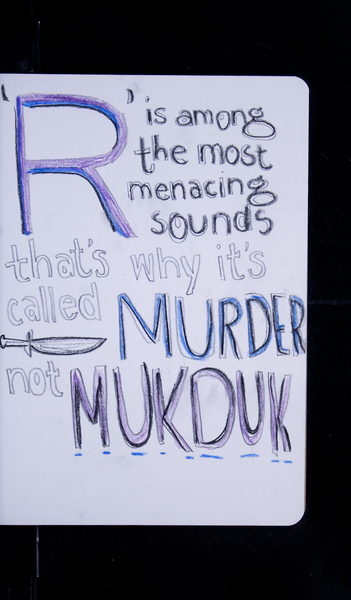 'R' is among
the most
menacing
sounds
that's why it's
called MURDER
not MUKDUK